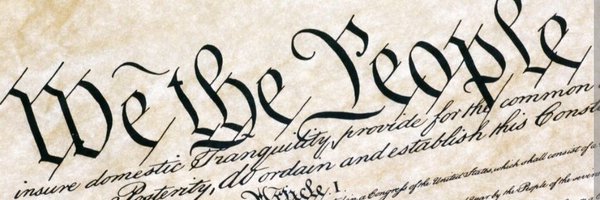 We the People
insure domestic Tranquility, provide for the common
Posterity, do ordain and establish this Const
Article. I.
Congress of the United States, which shall consist of a
Year by the People of the seve